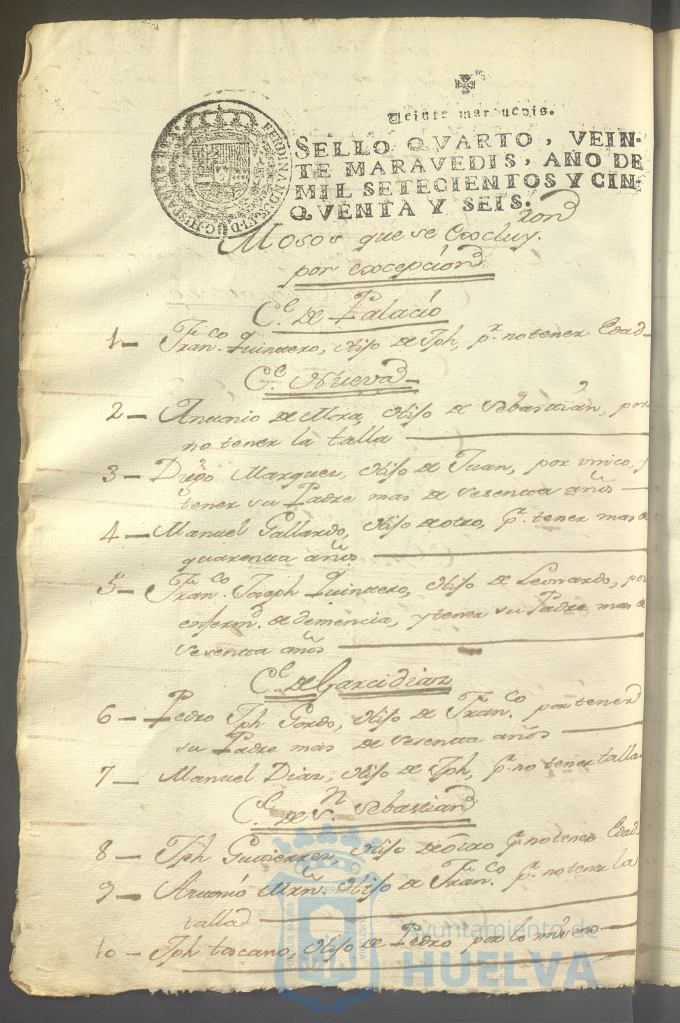 Veinte marauedis.
SELLO QVARTO, VEIN-
TE MARAVEDIS, AÑO DE
MIL SETECIENTOS Y CIN-
QVENTA Y SEIS.
FERDINANDUS VI D G HISPANIAR REX
Mosos que se excluy.ron
por excepcion
C.e de Palacio
1- Fran.co Quintero, Hijo de Jph, p.r no tener Edad-
C.e Nueva-
2- Antonio de Mora, Hijo de Sebastian, por
no tener la talla
3- Diego Marquez, Hijo de Juan, por vnico, y
tener su Padre mas de sesenta años
4- Manuel Gallardo, Hijo de otro, p.r tener mas de
quarenta años
5- Fran.co Joseph Quintero, Hijo de Leonardo, por
enferm.d de demencia, y tener su Padre mas de
sesenta años
C.e de Garcidiaz
6- Pedro Jph Gordo, Hijo de Fran.co por tener
su Padre mas de sesenta años
7- Manuel Diaz, Hijo de Jph, p.r no tener talla
C.e de S.n Sebastian
8- Jph Gutierrez, Hijo de otro p.r no tener Edad
9- Antonio Mrn. Hijo de Fran.co p.r no tener la
talla
10- Jph toscano, Hijo de Pedro por lo mismo
Ayuntamiento de
HUELVA